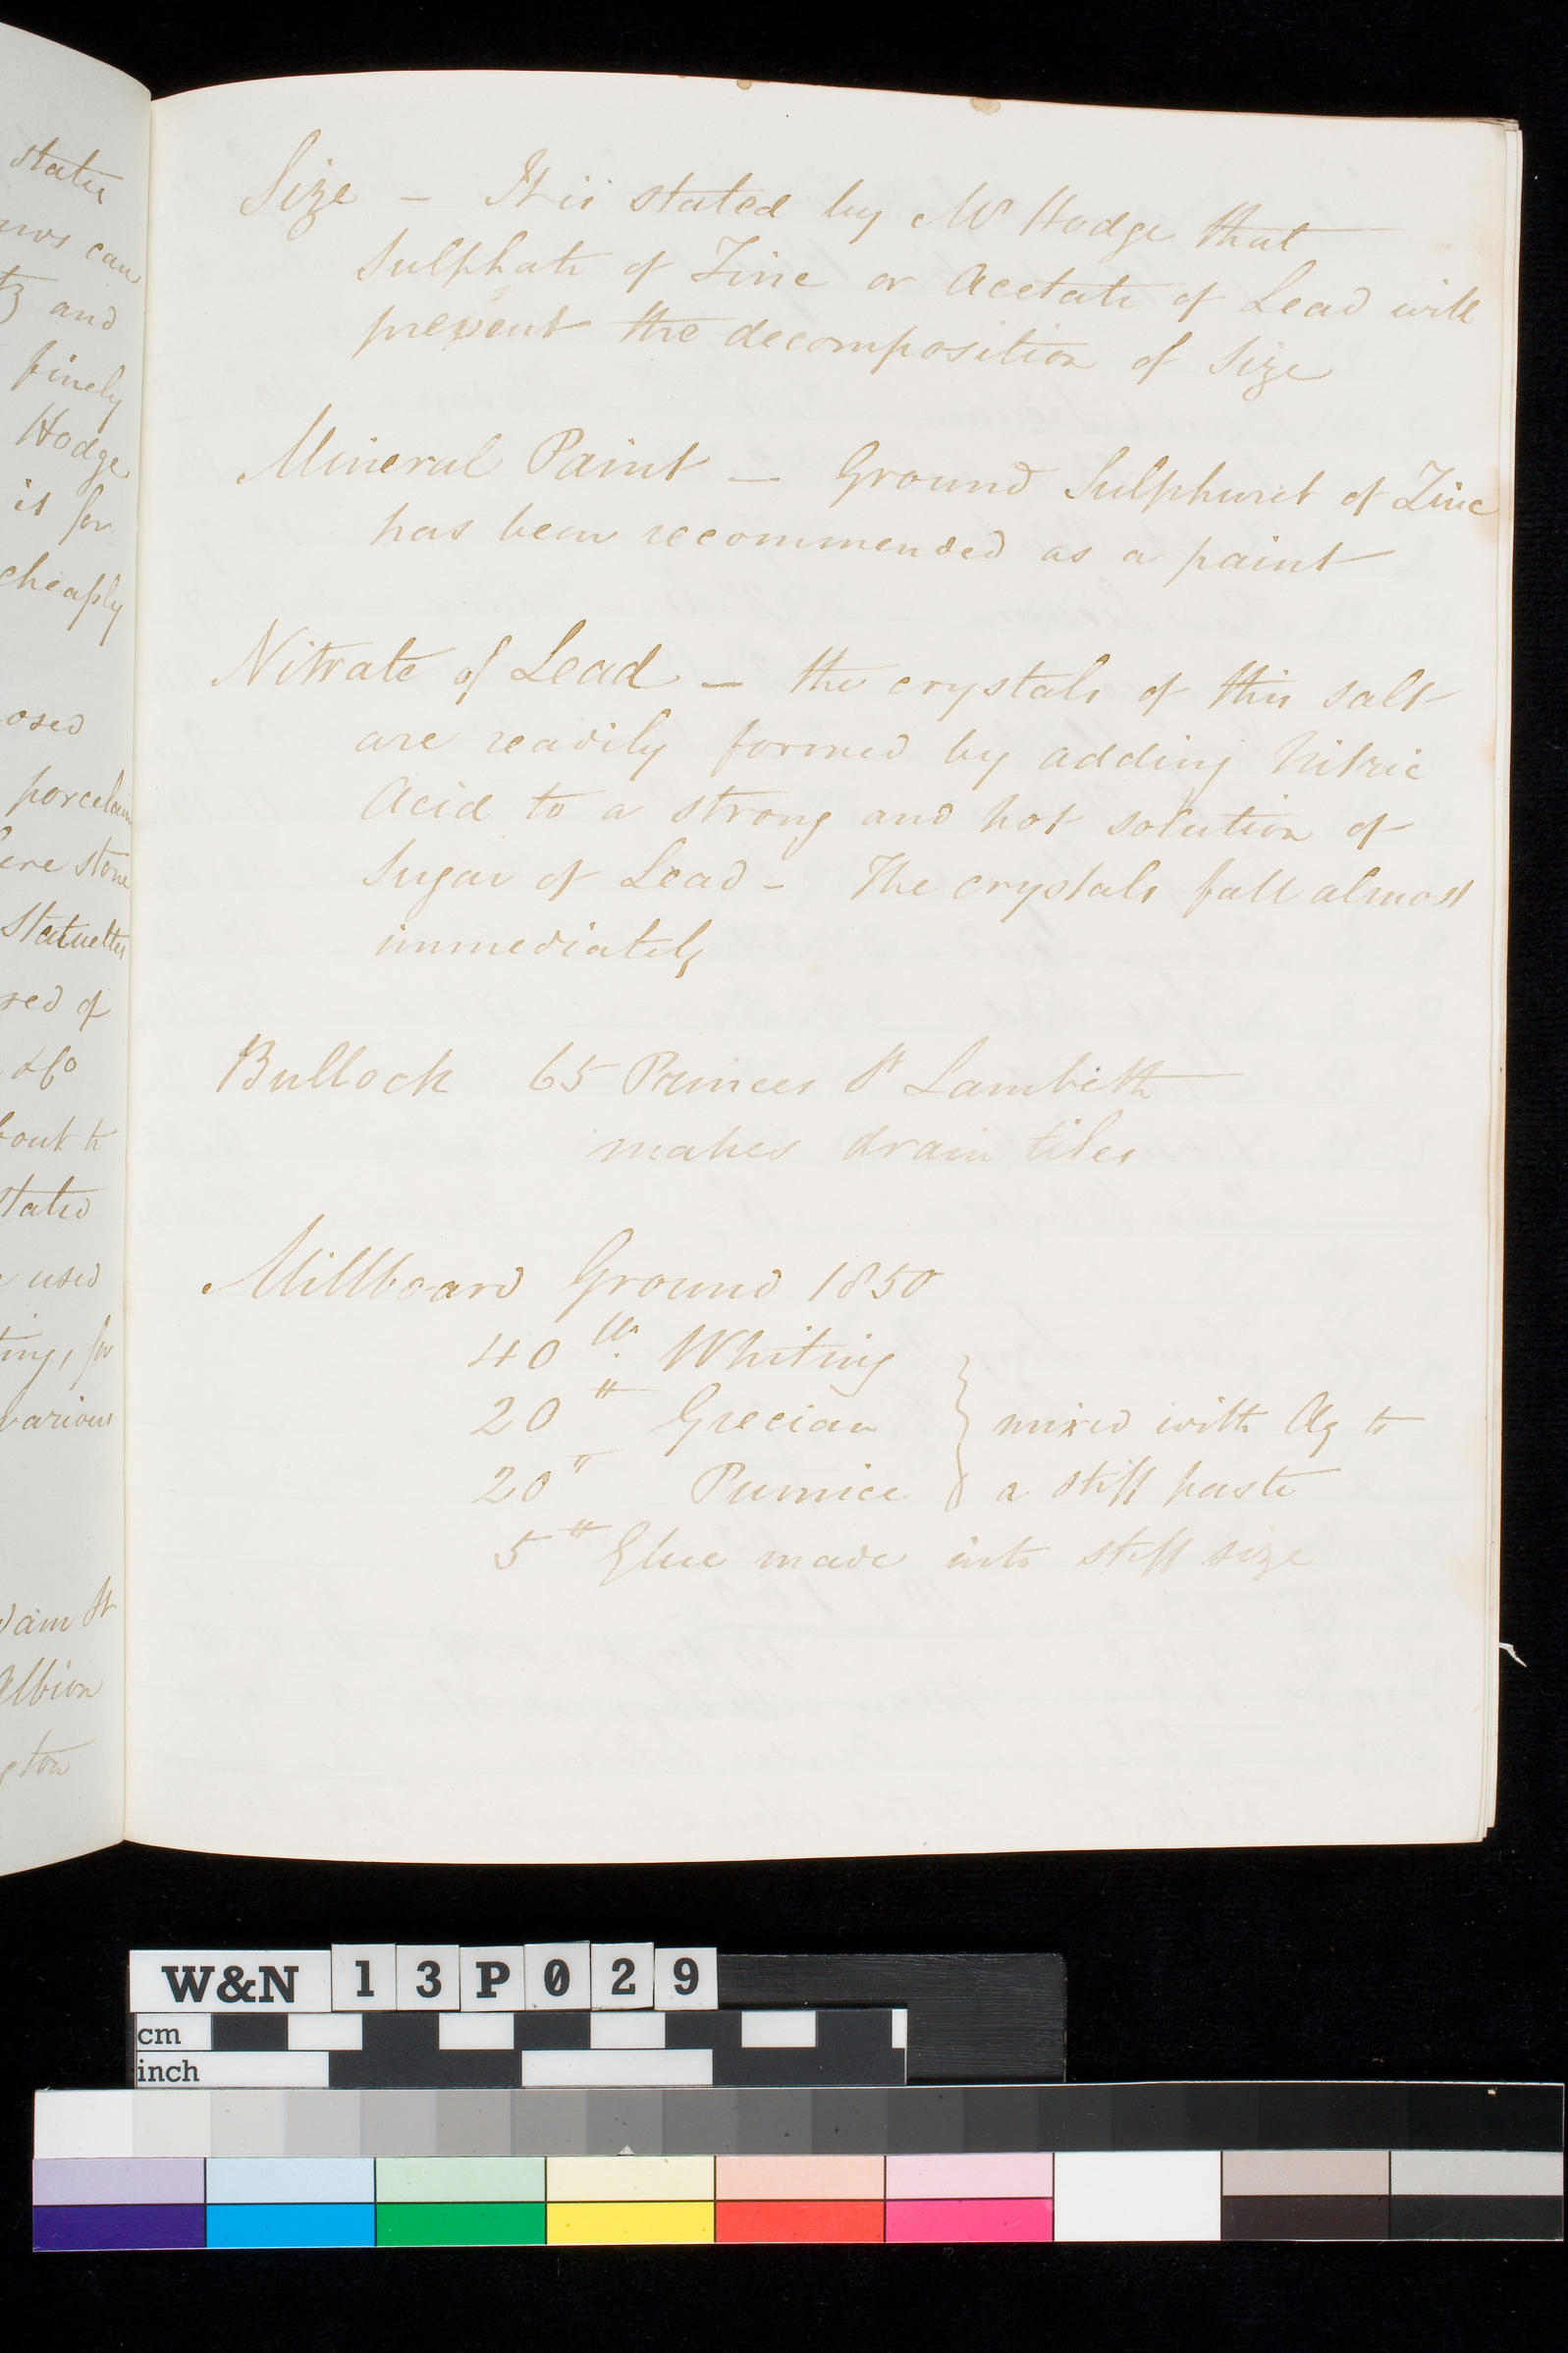 state
can
and
finely
Hodge
it for
cheaply
osed
porcelain
stone
Statuettes
sed of
&c
bout to
stated
used
ting, for
various
Adam St
Albion
gton
Size - It is stated by Mr Hodge that
Sulphate of Zinc or Acetate of Lead will
prevent the decomposition of Size
Mineral Paint - Ground Sulphuret of Zinc
has been recommended as a paint
Nitrate of Lead - the crystals of this salt
are readily formed by adding Nitric
Acid to a strong and hot solution of
Sugar of Lead - The crystals fall almost
immediately
Bullock 65 Princes St Lambeth
makes drain tiles
Millboard Ground 1850
40 lbs Whiting
20 " Grecian } mixed with Aq to
20 " Pumice } a stiff paste
5 " Glue made into stiff size
W&N 13P029
cm
inch